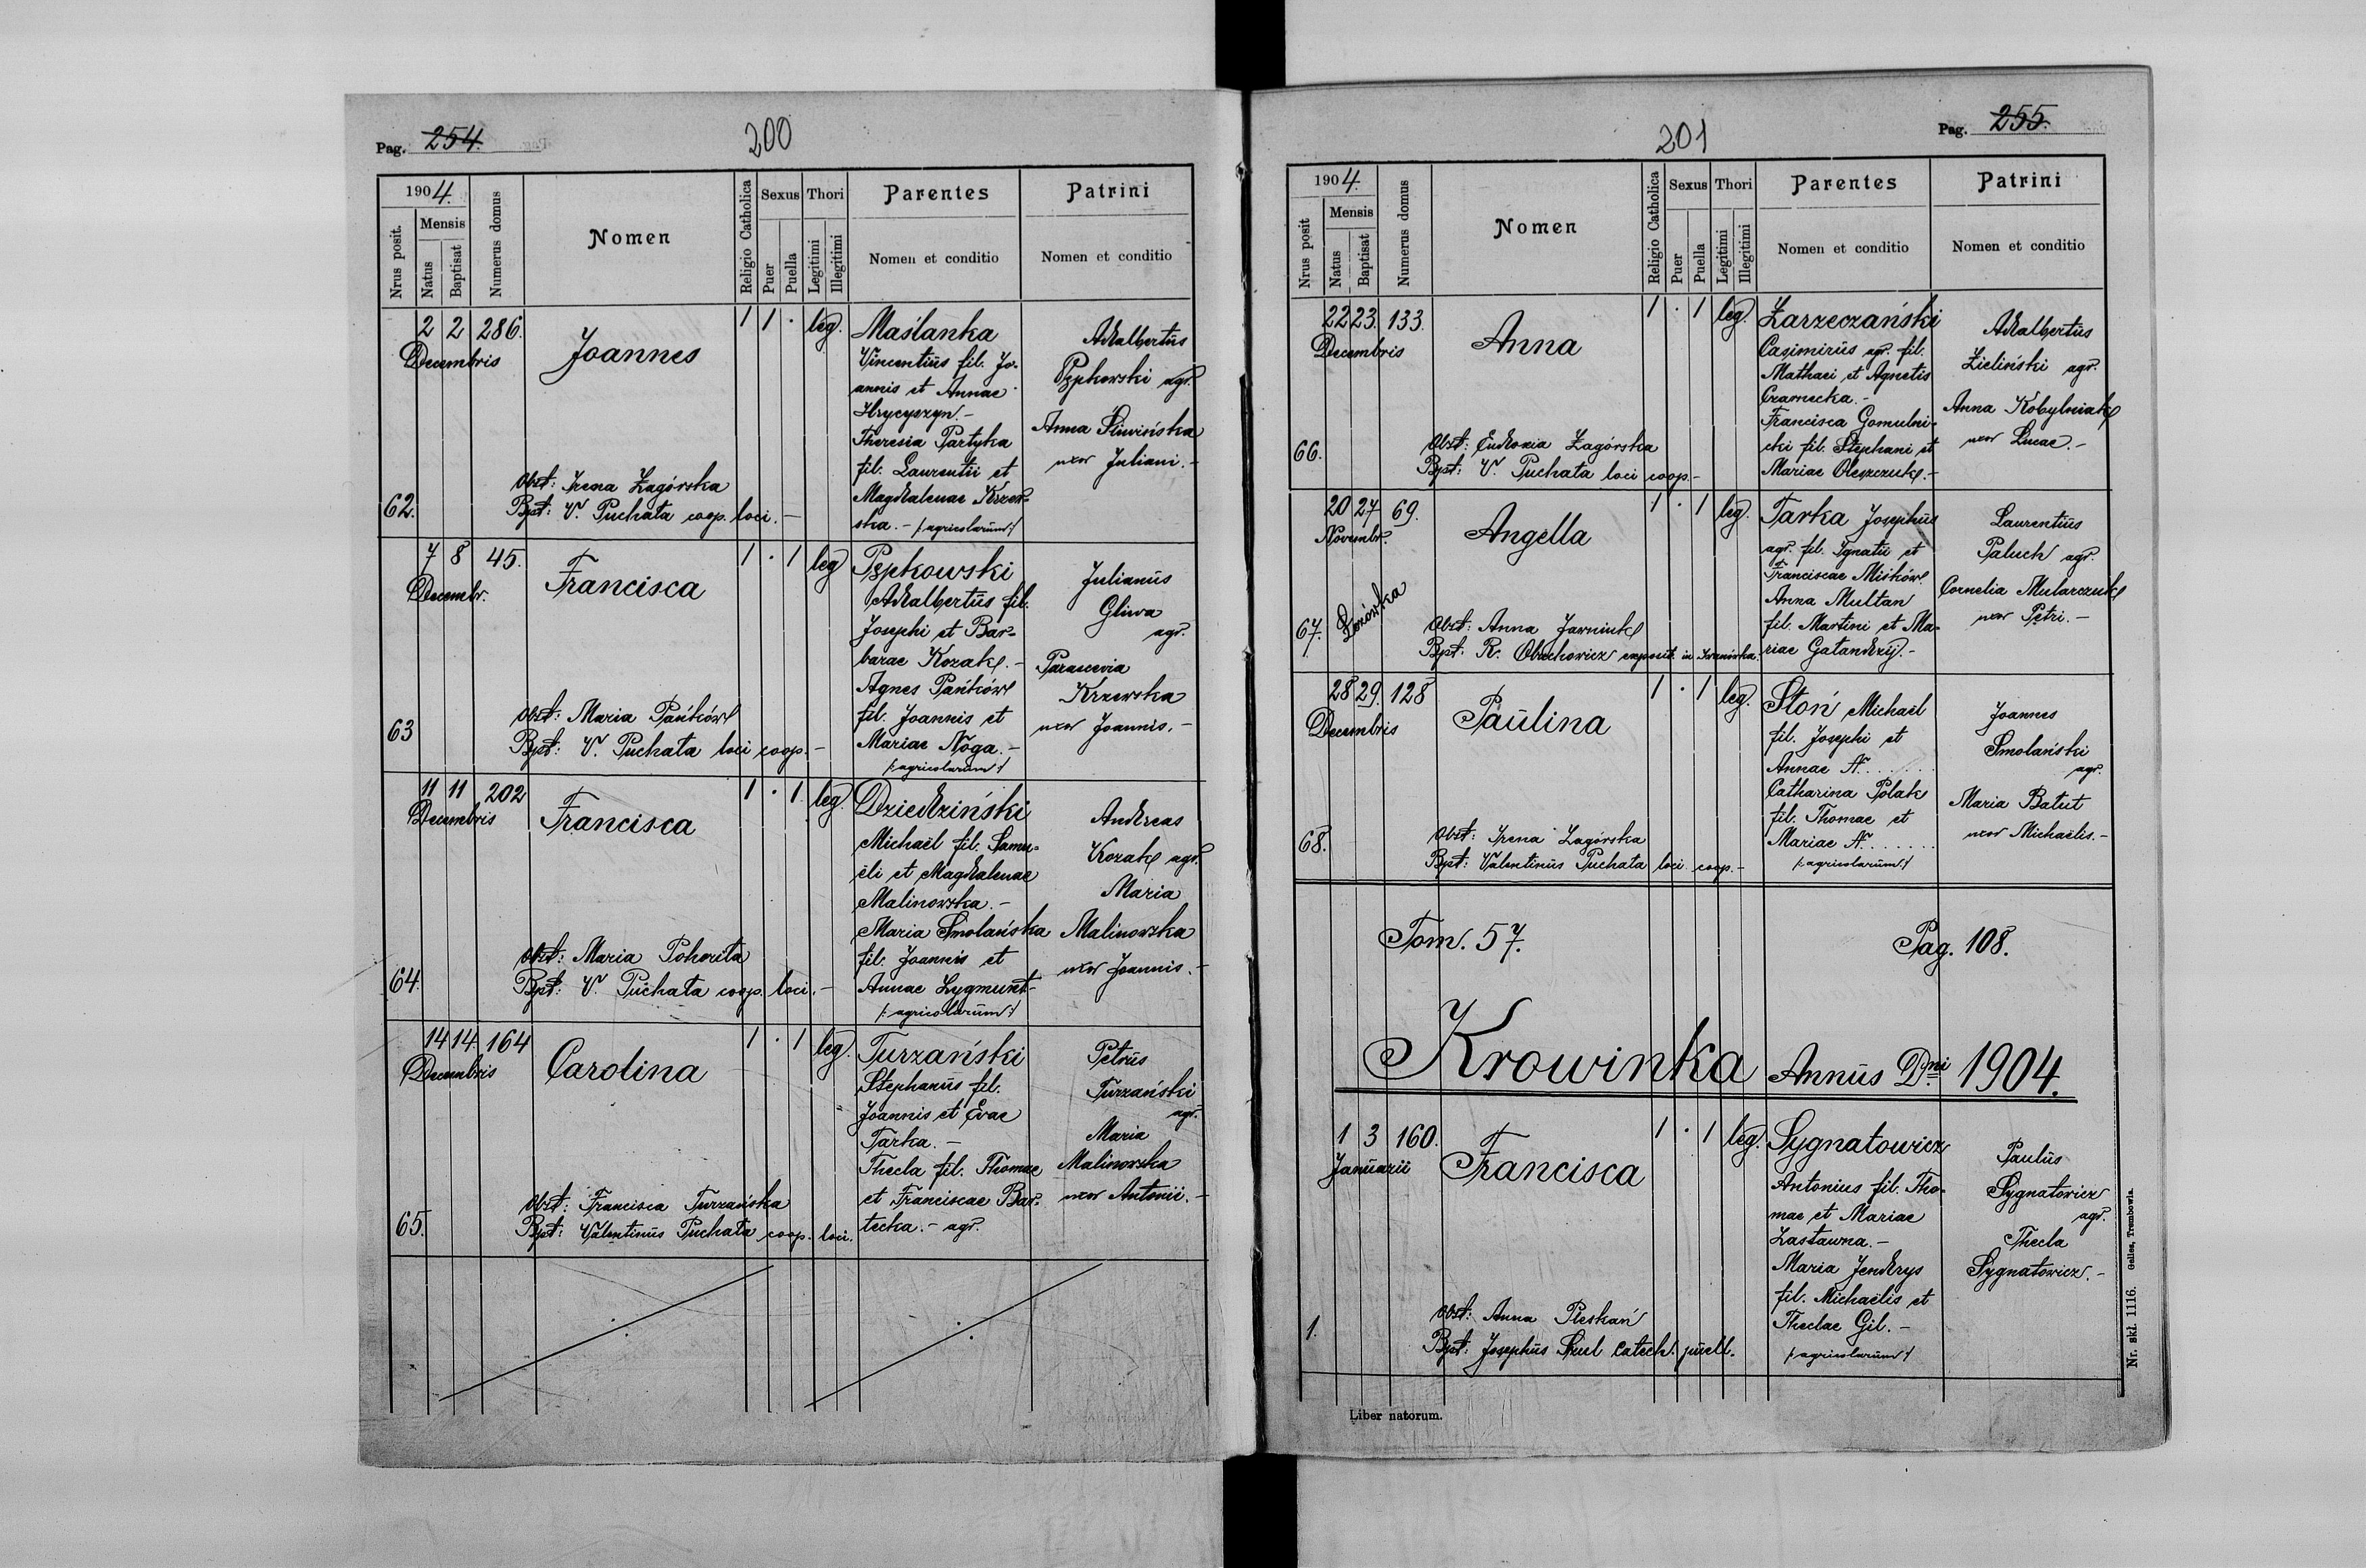 Pag. 254.
200
1904.
Nrus posit.
Mensis
Natus
Baptisat
Numerus domus
Nomen
Religio Catholica
Sexus
Puer
Puella
Thori
Legitimi
Illegitimi
Parentes
Nomen et conditio
Patrini
Nomen et conditio
62.
2 2 286.
Decembris
Joannes
1 1 · leg.
Obst: Irena Zagórska
Bpt: V. Puchata coop. loci. —
Maślanka
Vincentius fil. Jo-
annis et Annae
Hrycyszyn. -
Theresia Partyka
fil. Laurentii et
Magdalenae
ska. - /: agricolarum :/
Adalbertus
Pępkowski agr.
Anna Śliwińska
uxor Juliani. -
63
7 8 45.
Decembr.
Francisca
1 · 1 leg
Obst: Maria Pańków
Bpt: V. Puchata loci coop. -
Pępkowski
Adalbertus fil.
Josephi et Bar-
barae Kozak. -
Agnes Pańków
fil. Joannis et
Mariae Noga. -
/: agricolarum :/
Julianus
Gliwa
agr.
Parascevia
Krzewska
uxor Joannis. -
64.
11 11 202
Decembris
Francisca
1 · 1 leg.
Obst: Maria Pohorita
Bpt: V. Puchata coop. loci. -
Dziedziński
Michaël fil. Samu-
ëli et Magdalenae
Malinowska. -
Maria Smolańska
fil. Joannis et
Annae Zygmunt-
/: agricolarum :/
Andreas
Kozak agr.
Maria
Malinowska
uxor Joannis. -
65.
14 14. 164
Decembris
Carolina
1 · 1 leg.
Obst: Francisca Turzańska
Bpt: Valentinus Puchata coop. loci.
Turzański
Stephanus fil.
Joannis et Evae
Tarka. -
Thecla fil. Thomae
et Franciscae Bar-
tecka. - agr.
Petrus
Turzański
agr.
Maria
Malinowska
uxor Antonii. -
201
Pag. 255.
1904.
Nrus posit
Mensis
Natus
Baptisat
Numerus domus
Nomen
Religio Catholica
Sexus
Puer
Puella
Thori
Legitimi
Illegitimi
Parentes
Nomen et conditio
Patrini
Nomen et conditio
66.
22 23. 133.
Decembris
Anna
1 · 1 leg.
Obst: Eudoxia Zagórska
Bpt: V. Puchata loci coop. -
Zarzeczański
Casimirus agr. fil.
Mathaei et Agnetis
Czarnecka. -
Francisca Gomulni-
cki fil. Stephani et
Mariae Oleszczuk. -
Adalbertus
Zieliński agr.
Anna Kobylniak
uxor Lucae. -
67.
20 27 69.
Novembr.
Łozówka
Angella
1 · 1 leg.
Obst: Anna Jarniuk
Bpt. R. Obuchowicz exposit. in Iwanówka.
Tarka Josephus
agr. fil. Ignatii et
Franciscae Miśków.
Anna Multan
fil. Martini et Ma-
riae Gatandzij. -
Laurentius
Paluch agr.
Cornelia Mularczuk
uxor Petri. -
68.
28 29. 128
Decembris
Paulina
1 · 1 leg.
Obst: Irena Zagórska
Bpt: Valentinus Puchata loci coop. -
Stoń Michaël
fil. Josephi et
Annae N. . . . . . .
Catharina Polak
fil. Thomae et
Mariae N. . . . . . .
/: agricolarum :/
Joannes
Smolański
agr.
Maria Batut
uxor Michaëlis. -
Tom. 57.
Pag. 108.
Krowinka Annus Dni 1904.
1.
1 3 160.
Januarii
Francisca
1 · 1 leg.
Obst: Anna Pleskań
Bpt: Josephus catech. puell.
Sygnatowicz
Antonius fil. Tho-
mae et Mariae
Zastawna. -
Maria Jendrys
fil. Michaëlis et
Theclae Gil. -
/: agricolarum :/
Paulus
Sygnatowicz
agr.
Thecla
Sygnatowicz. -
Liber natorum.
Nr. skł. 1116. Gelles, Trembowla.